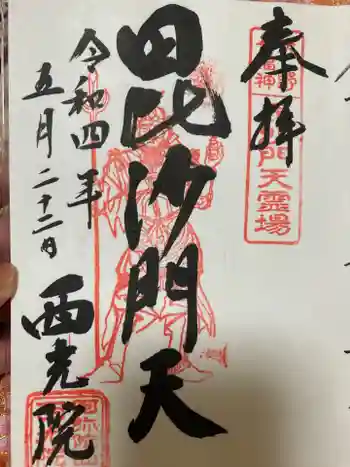 奉拝
門天霊場
毘沙門天
令和四年
五月二十二日
西光院